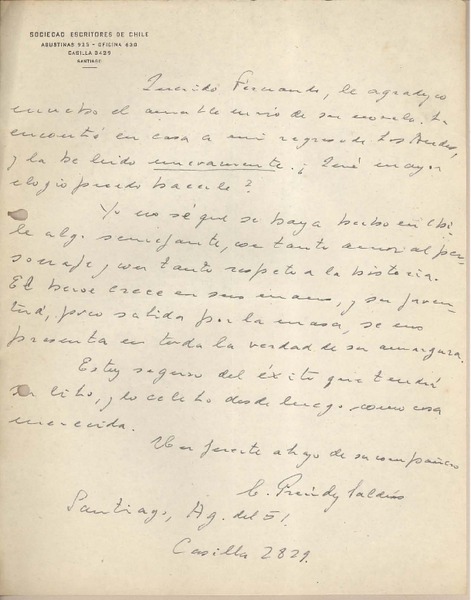 SOCIEDAD ESCRITORES DE CHILE
AGUSTINAS 925 - OFICINA 630
CASILLA 2429
SANTIAGO
Querido Fernando, le agradezco
mucho el amable envío de su novela. La
encontré en casa a mi regreso de Los Andes,
y la he leído nuevamente. ¿Qué mayor
elogio puedo hacerle?
Yo no sé que se haya hecho en Chi-
le algo semejante, con tanto amor al per-
sonaje y con tanto respeto a la historia.
El héroe crece en sus manos, y su juven-
tud, poco sabida por la masa, se nos
presenta en toda la verdad de su amargura.
Estoy seguro del éxito que tendrá
su libro, y lo celebro desde luego como cosa
merecida.
Un fuerte abrazo de su compañero
C. Préndez Saldías
Santiago, Ag. del 51
Casilla 2829.